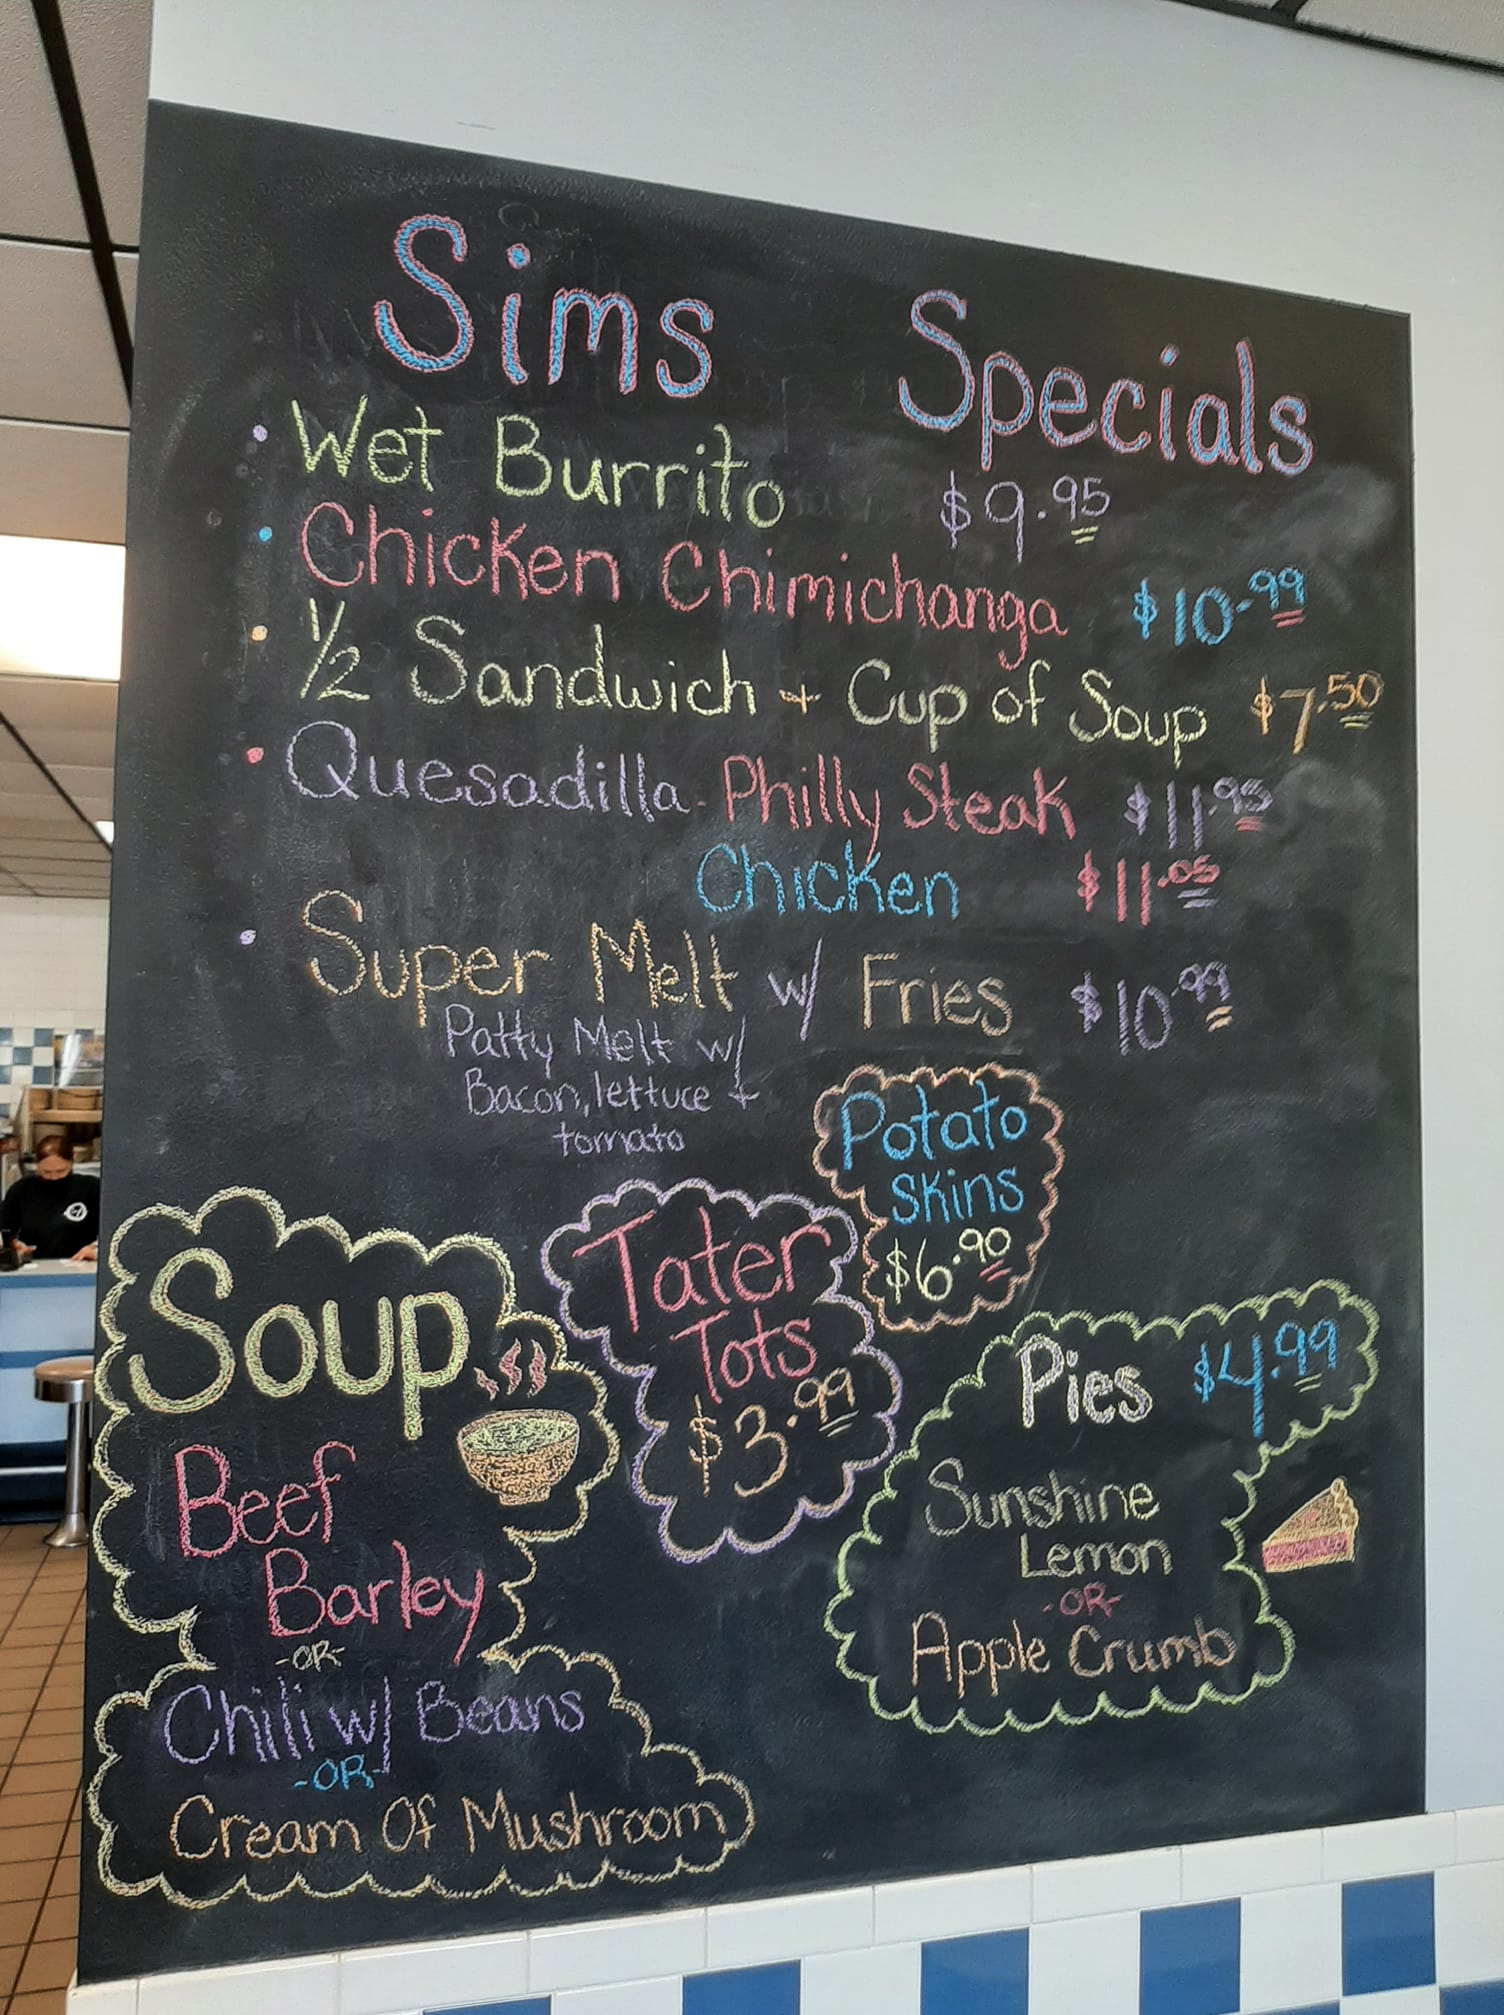 Sims Specials
• Wet Burrito $9.95
• Chicken Chimichanga $10.99
• 1/2 Sandwich + Cup of Soup $7.50
• Quesadilla - Philly Steak $11.95
Chicken $11.05
• Super Melt w/ Fries $10.99
Patty Melt w/
Bacon, lettuce +
tomato
Potato
Skins
$6.90
Tater
Tots
$3.99
Soup
Beef
Barley
-OR-
Chili w/ Beans
-OR-
Cream Of Mushroom
Pies $4.99
Sunshine
Lemon
-OR-
Apple Crumb